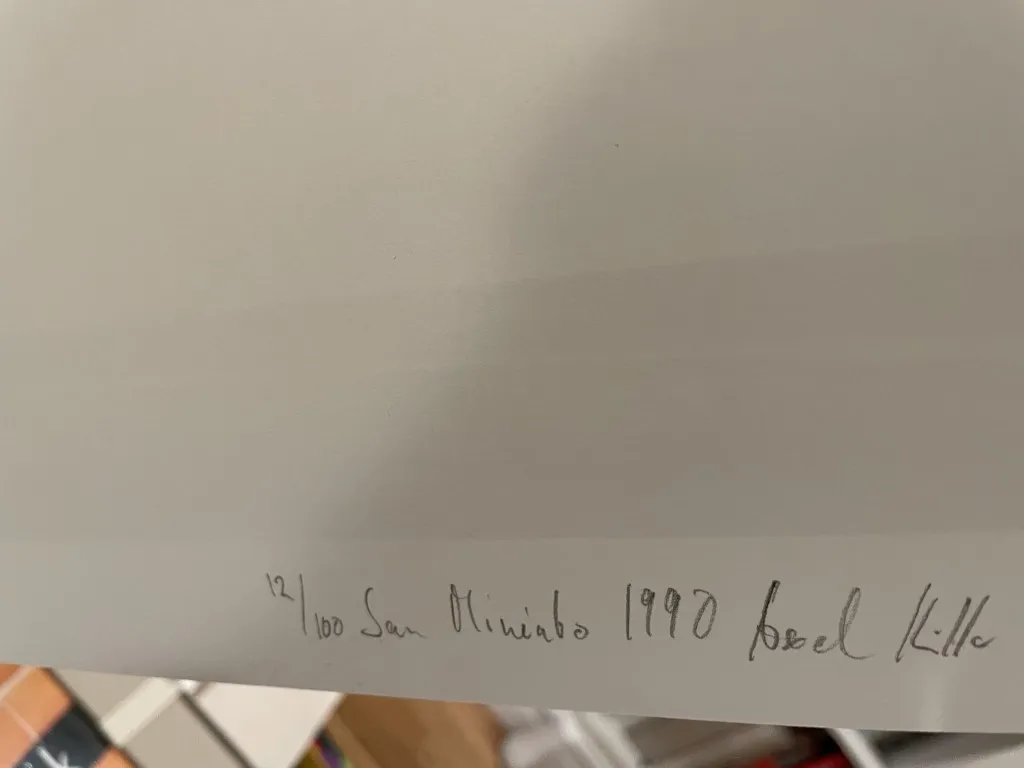 12/100 San Miniato 1990 Axel